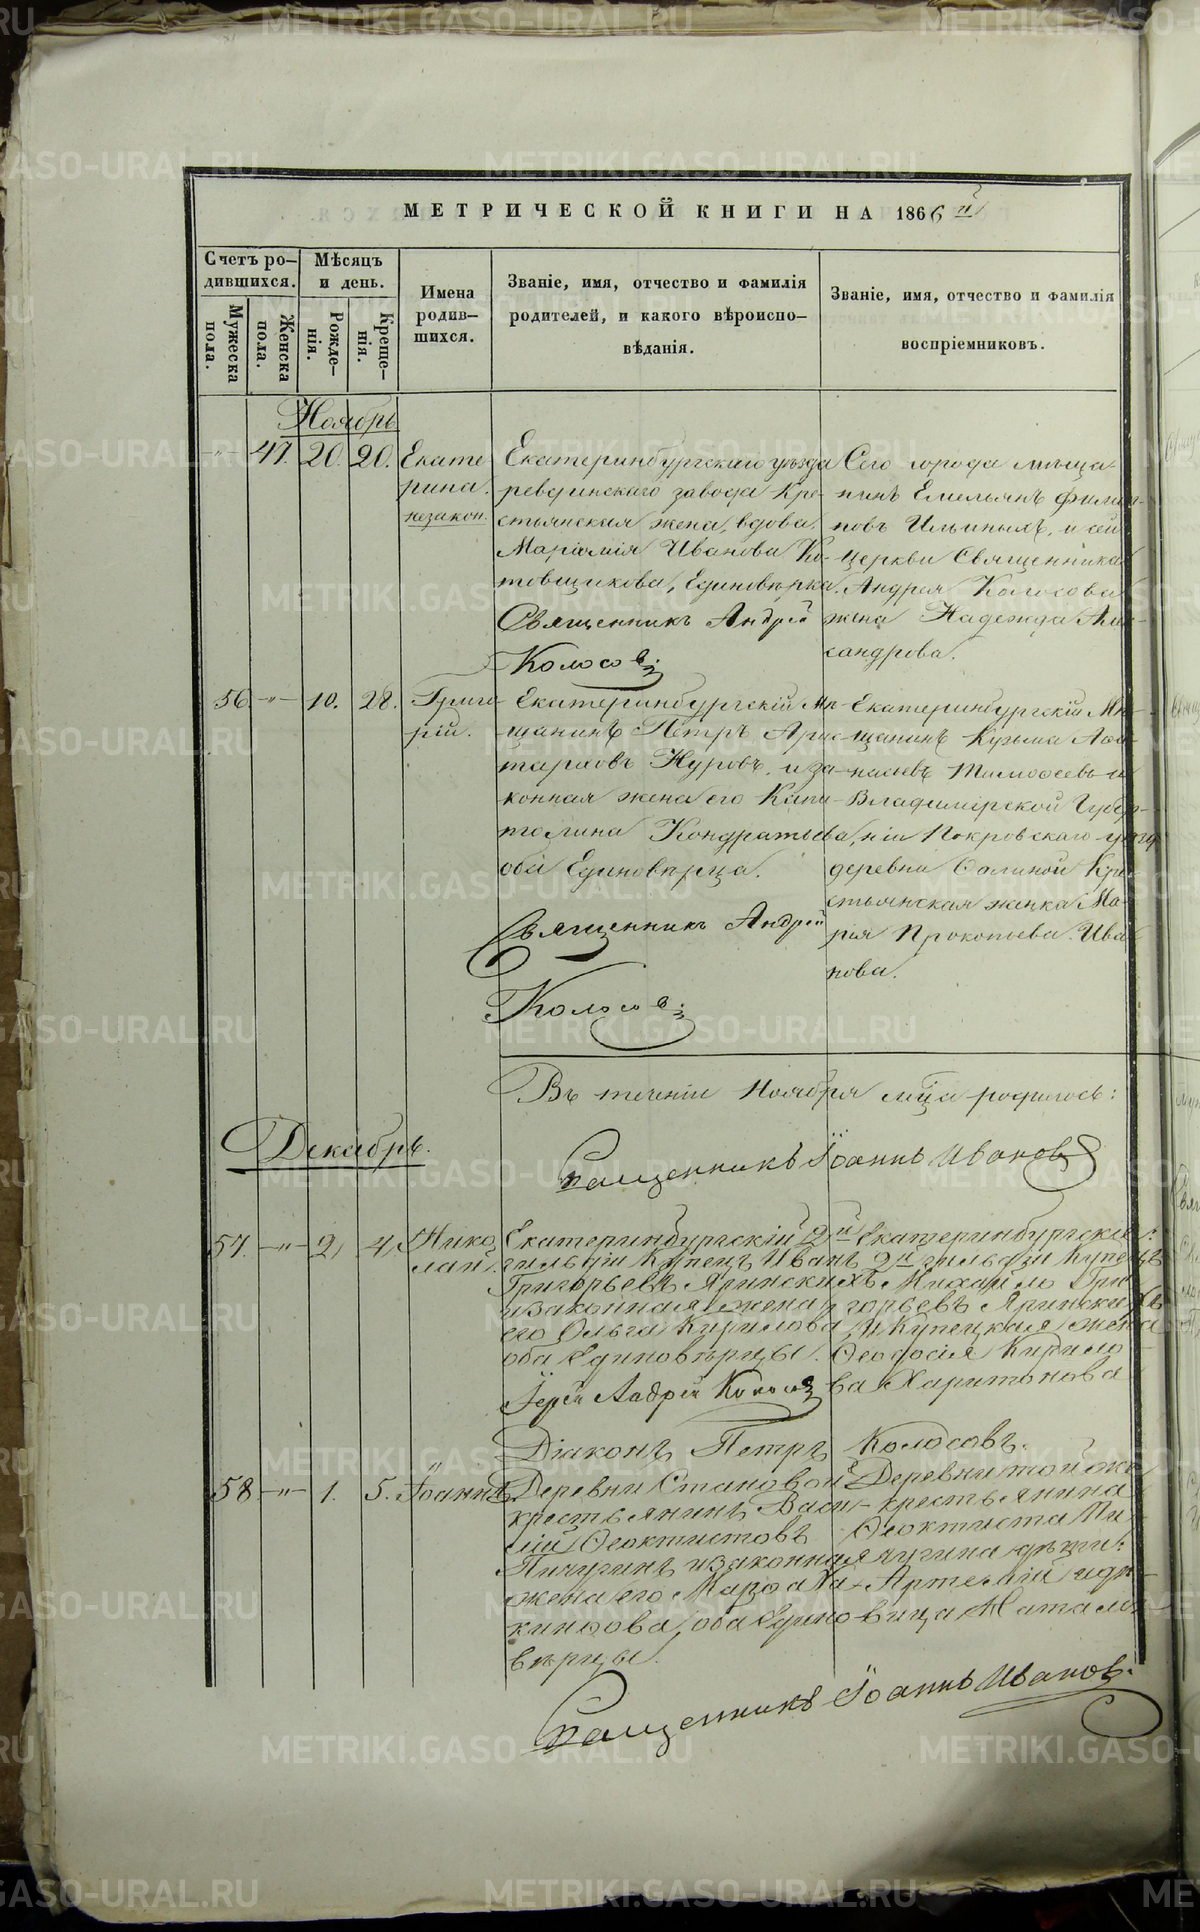 МЕТРИЧЕСКОЙ КНИГИ НА 1866й
Счетъ ро-
дившихся.
Мужеска
пола.
Женска
пола.
Мѣсяцъ
и день.
Рожде-
нія.
Креще-
нія.
Имена
родив-
шихся.
Званіе, имя, отчество и фамилія
родителей, и какого вѣроиспо-
вѣданія.
Званіе, имя, отчество и фамилія
воспріемниковъ.
Ноябрь
-"- 47. 20. 20.
Екате
рина.
незакон.
Екатеринбургскаго уѣзда
ревдинскаго завода Кре-
стьянская жена, вдова,
Маріамія Иванова Ко-
товщикова, Единовѣрка.
Священникъ Андрей
Колосовъ.
Сего города мѣща-
нинъ Емельянъ Филип-
повъ Ильиныхъ, и сей
церкви Священника
Андрея Колосова
жена Надежда Алек-
сандрова.
56. -"- 10. 28.
Григо-
рій.
Екатеринбургскій Мѣ-
щанинъ Петръ Арис-
тарховъ Нуровъ, и за-
конная жена его Капи-
толина Кондратьева,
оба Единовѣрца.
Священникъ Андрей
Колосовъ.
Екатеринбургскій Мѣ-
щанинъ Кузьма Афа-
насьевъ Тимофеевъ и
Владимірской Губер-
ніи Покровскаго
деревни Кре-
стьянская женка Ма-
рія Прокопьева Ива-
нова.
Въ теченіи Ноября мѣца родилось:
Священникъ Іоаннъ Ивановъ
Декабрь.
57. -"- 2. 4.
Нико
лай.
Екатеринбургскій 2й
гильдіи Купецъ Иванъ
Григорьевъ Яринскихъ
и законная жена
его Ольга Кирилова,
оба Единовѣрцы.
Іерей Андрей Колосовъ
Екатеринбургскіе:
2й гильдіи купецъ
Михайло Гри
горьевъ Яринскихъ
и Купецкая жена
Ѳеодосія Кирило
ва Харитонова
Діаконъ Петръ Колосовъ.
58. -"- 1. 5.
Іоаннъ.
Деревни Становой
крестьянинъ Васи-
лій Ѳеоктистовъ
Пичугинъ и законная
жена его Марфа
кинфова, оба Едино
вѣрцы.
Деревни той же
крестьянина
Ѳеоктиста Пи
чугина дѣти:
Артемій и дѣ-
вица Наталья
Священникъ Іоаннъ Ивановъ.
METRIKI.GASO-URAL.RU